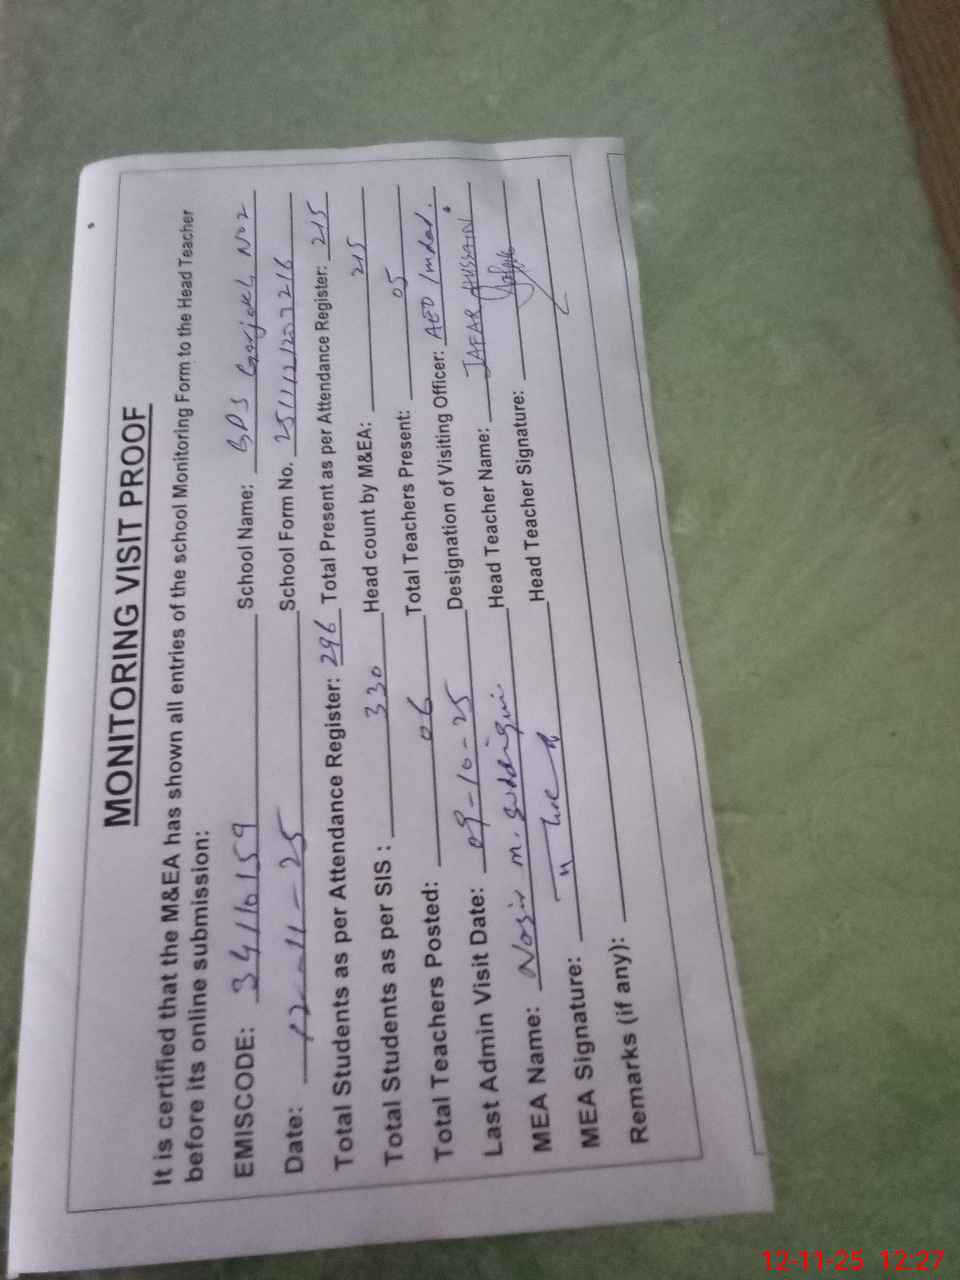 MONITORING VISIT PROOF
It is certified that the M&EA has shown all entries of the school Monitoring Form to the Head Teacher
before its online submission:
EMISCODE: 34110159 School Name: GPS No 2
Date: 12-11-25 School Form No. 251112203216
Total Students as per Attendance Register: 296 Total Present as per Attendance Register: 215
Total Students as per SIS : 330 Head count by M&EA: 215
Total Teachers Posted: 06 Total Teachers Present: 05
Last Admin Visit Date: 09-10-25 Designation of Visiting Officer: AEO Imdad.
MEA Name: Nazir M. Siddiqui Head Teacher Name: JAFAR HUSSAIN
MEA Signature: Head Teacher Signature:
Remarks (if any):
12-11-25 12:27